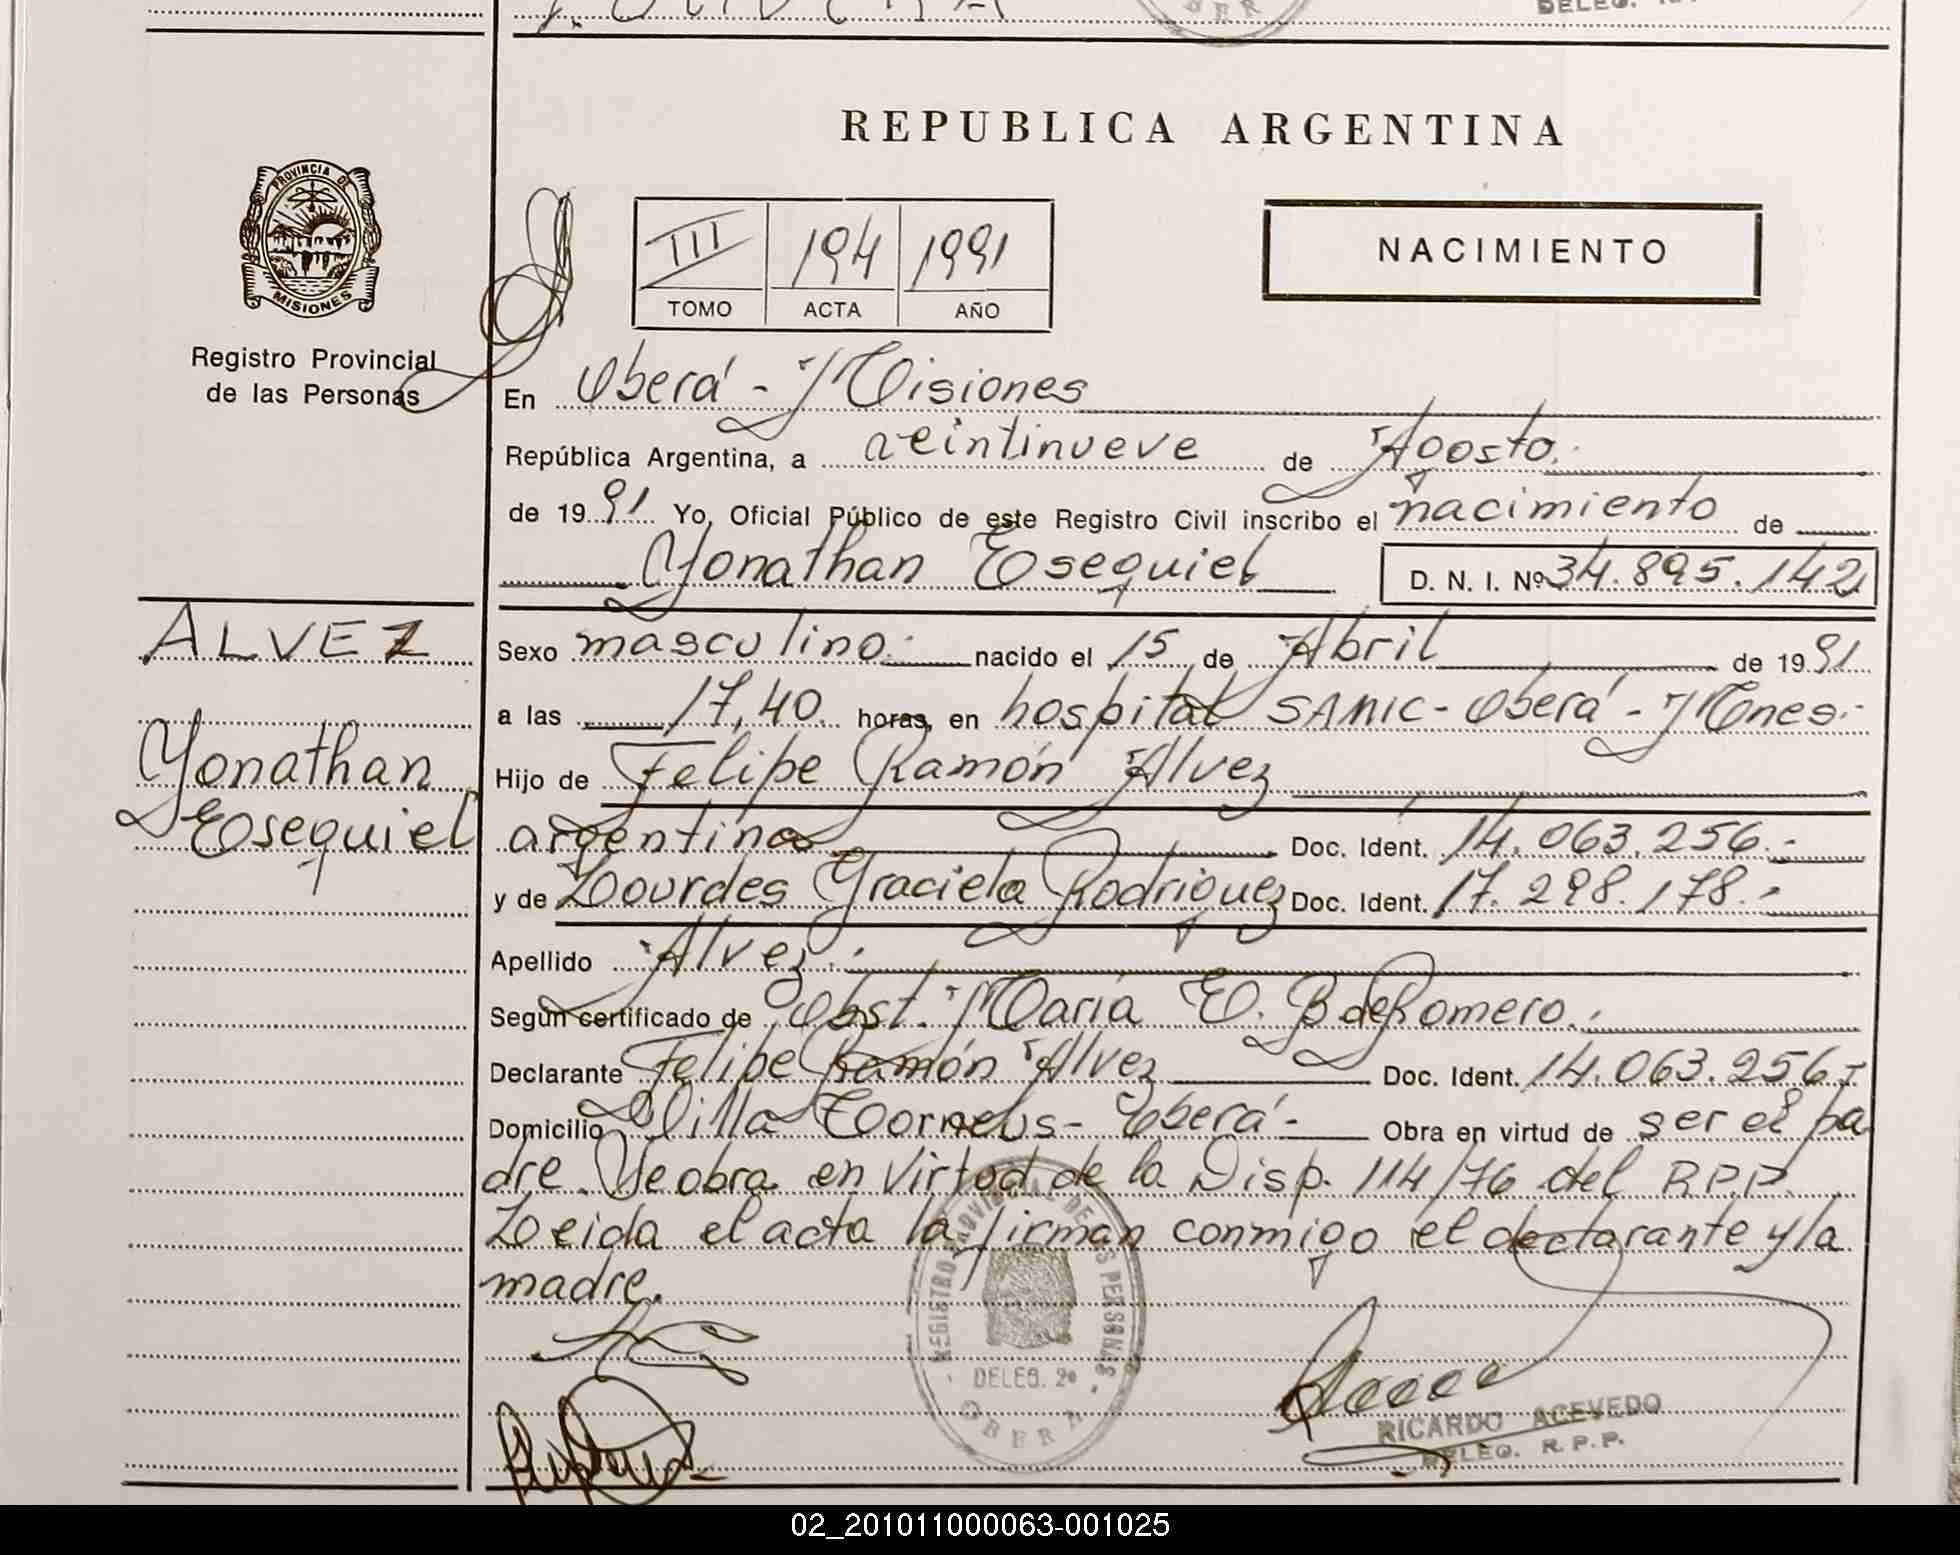 DELEG.
REPUBLICA ARGENTINA
PROVINCIA DE
MISIONES
Registro Provincial
de las Personas
III 194 1991
TOMO ACTA AÑO
NACIMIENTO
En Oberá - Misiones
República Argentina, a veintinueve de Agosto.
de 1991 Yo, Oficial Público de este Registro Civil inscribo el nacimiento de
Yonathan Esequiel D. N. I. Nº 34.895.142
ALVEZ
Yonathan
Esequiel
Sexo masculino. nacido el 15 de Abril de 1991
a las 17,40 horas, en hospital SAMIC - Oberá - Mnes.
Hijo de Felipe Ramón Alvez
argentino Doc. Ident. 14.063.256.-
y de Lourdes Graciela Rodriguez Doc. Ident. 17.298.178.-
Apellido Alvez.
Según certificado de Obst. María E. B de Romero.
Declarante Felipe Ramón Alvez Doc. Ident. 14.063.256-
Domicilio Villa Tornebs - Oberá - Obra en virtud de ser el pa
dre. Se obra en virtud de la Disp. 114/76 del R.P.P.
Leida el acta la firman conmigo el declarante y la
madre.
REGISTRO PROVINCIAL DE LAS PERSONAS
DELEG. 2ª
OBERA
RICARDO ACEVEDO
DELEG. R.P.P.
02_201011000063-001025